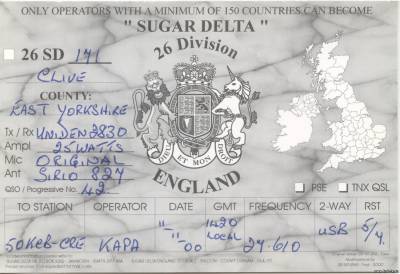 ONLY OPERATORS WITH A MINIMUM OF 150 COUNTRIES CAN BECOME
" SUGAR DELTA "
26 SD 171
26 Division
CLIVE
COUNTY:
EAST YORKSHIRE
Tx / Rx UNIDEN 2830
Ampl 25 WATTS
Mic ORIGINAL
Ant SIRIO 827
QSO / Progressive No. 42
DIEU ET MON DROIT
ENGLAND
PSE TNX QSL
TO STATION OPERATOR DATE GMT FREQUENCY 2-WAY RST
KAPA 11 - 11 - 00 1420 LOCAL 27-610 USB 5/9